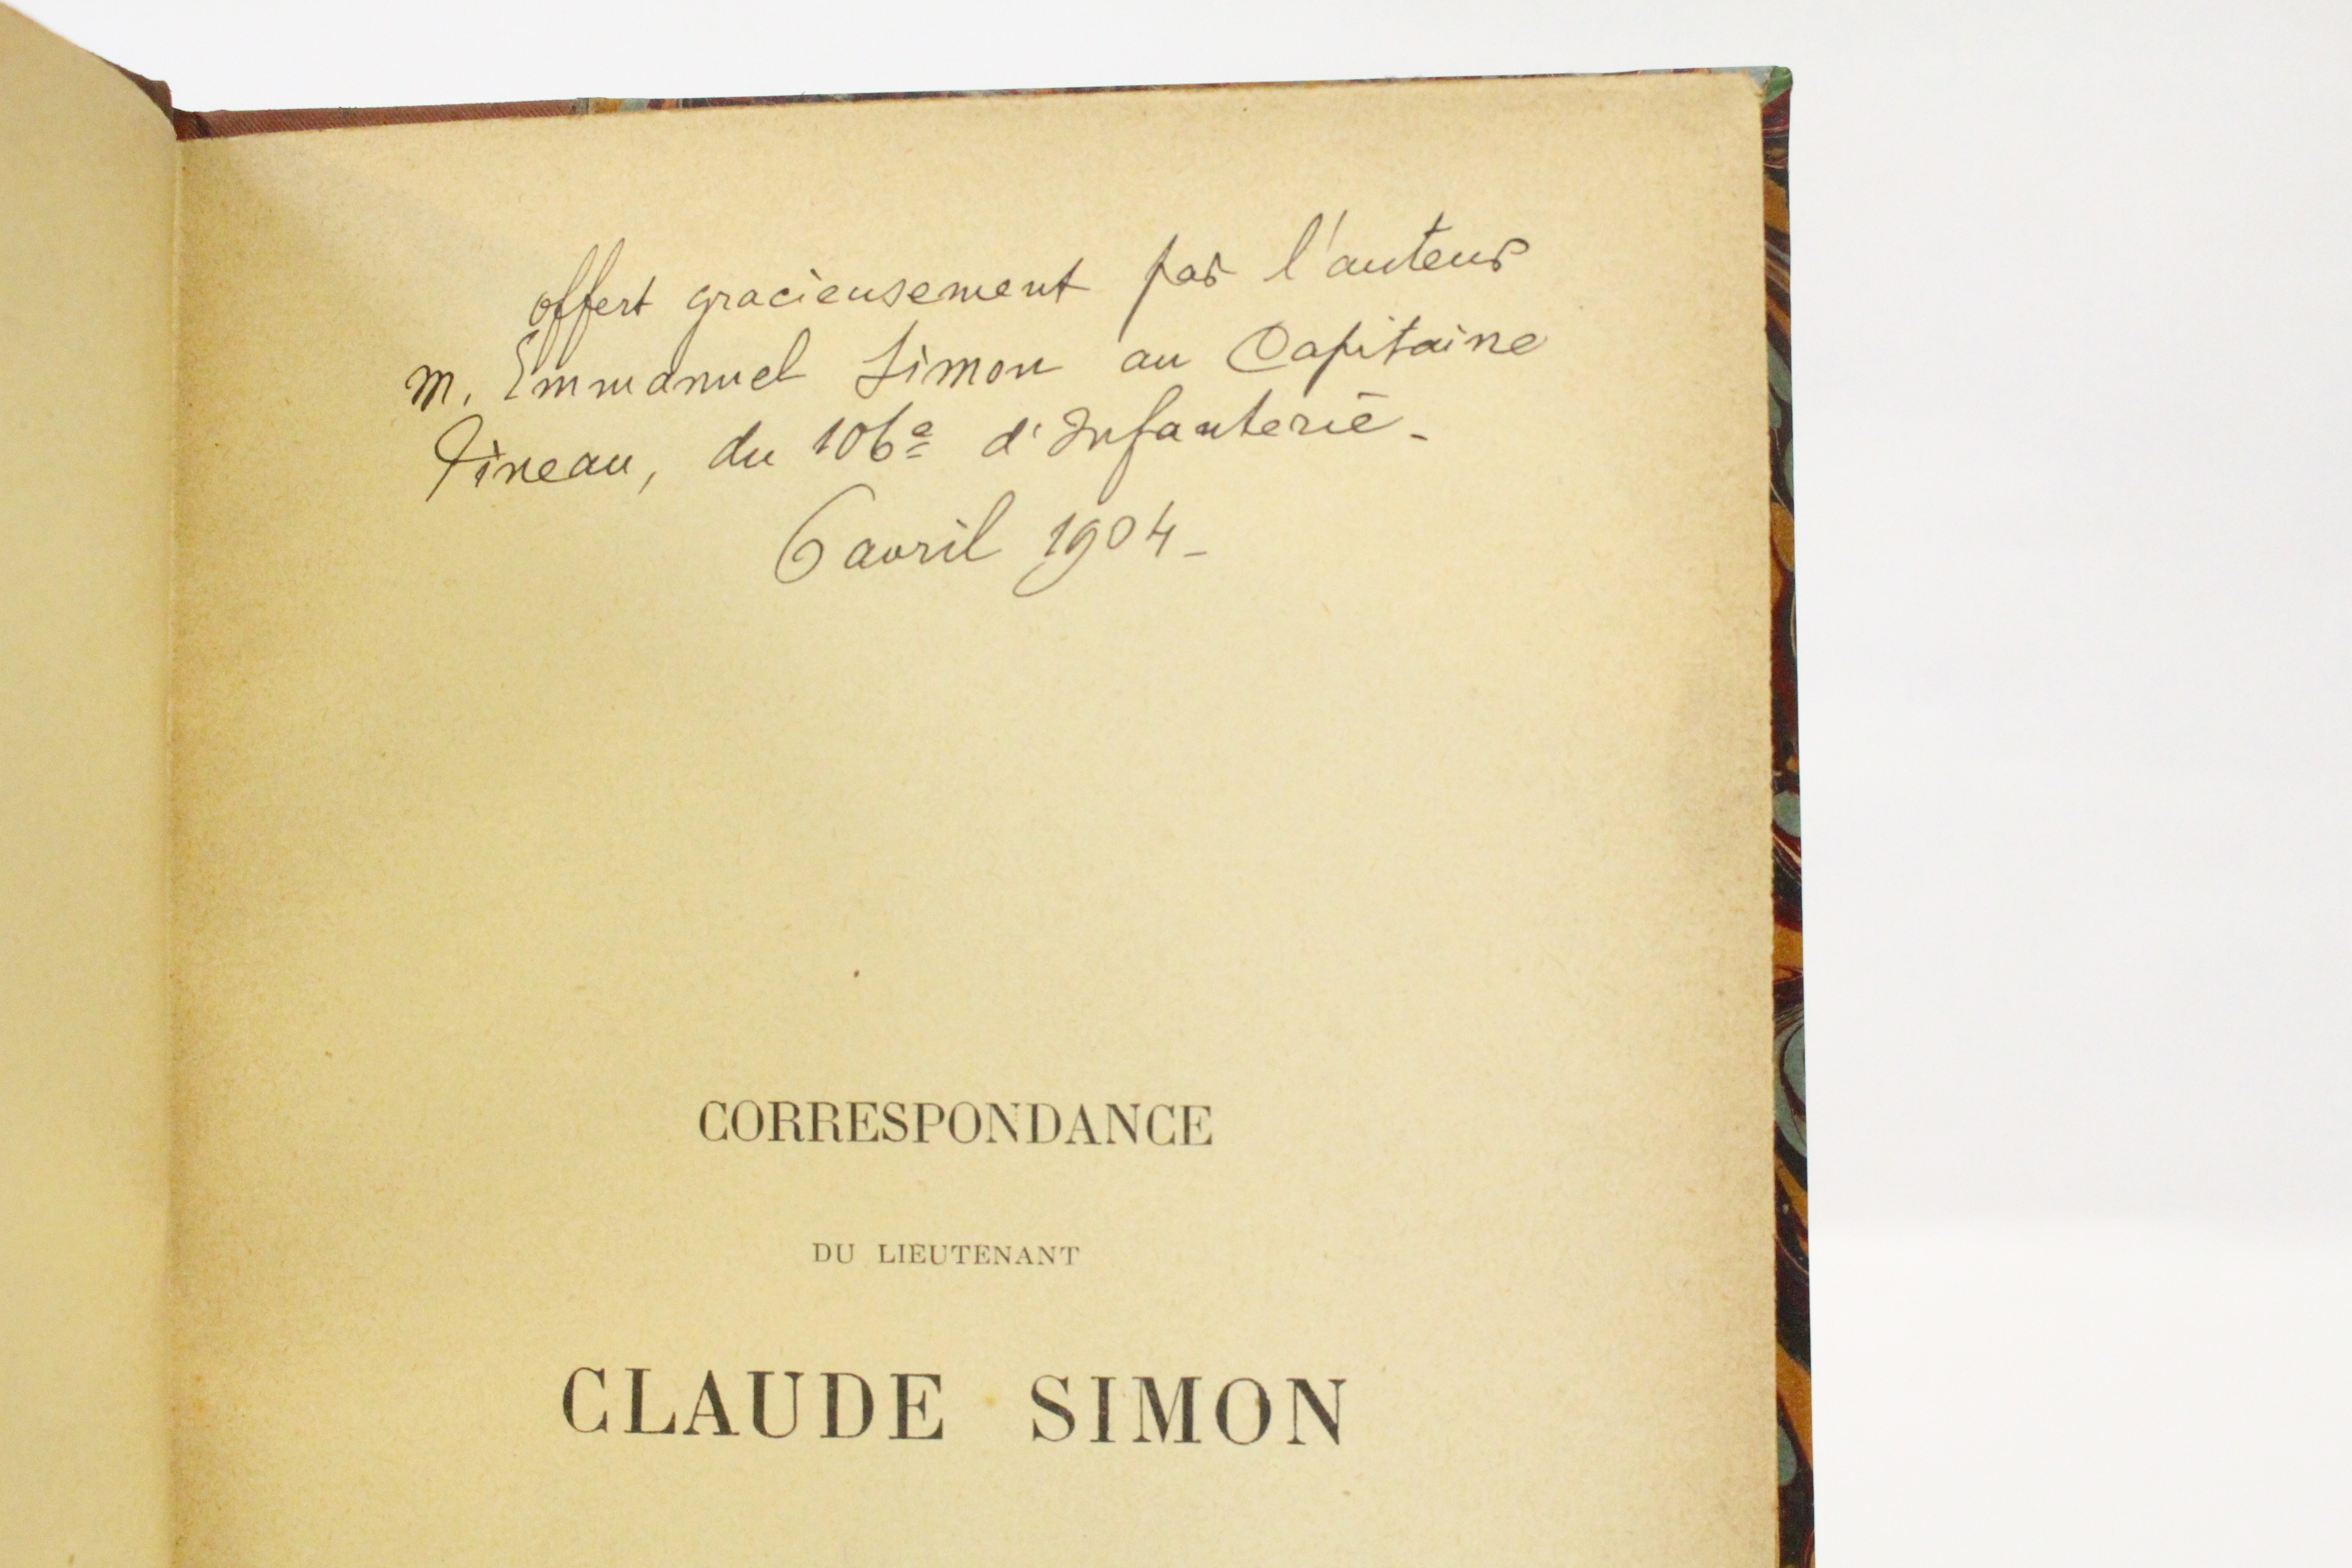 offert gracieusement par l'auteur
M. Emmanuel Simon au Capitaine
Pineau, du 106e d'Infanterie -
6 avril 1904 -
CORRESPONDANCE
DU LIEUTENANT
CLAUDE SIMON